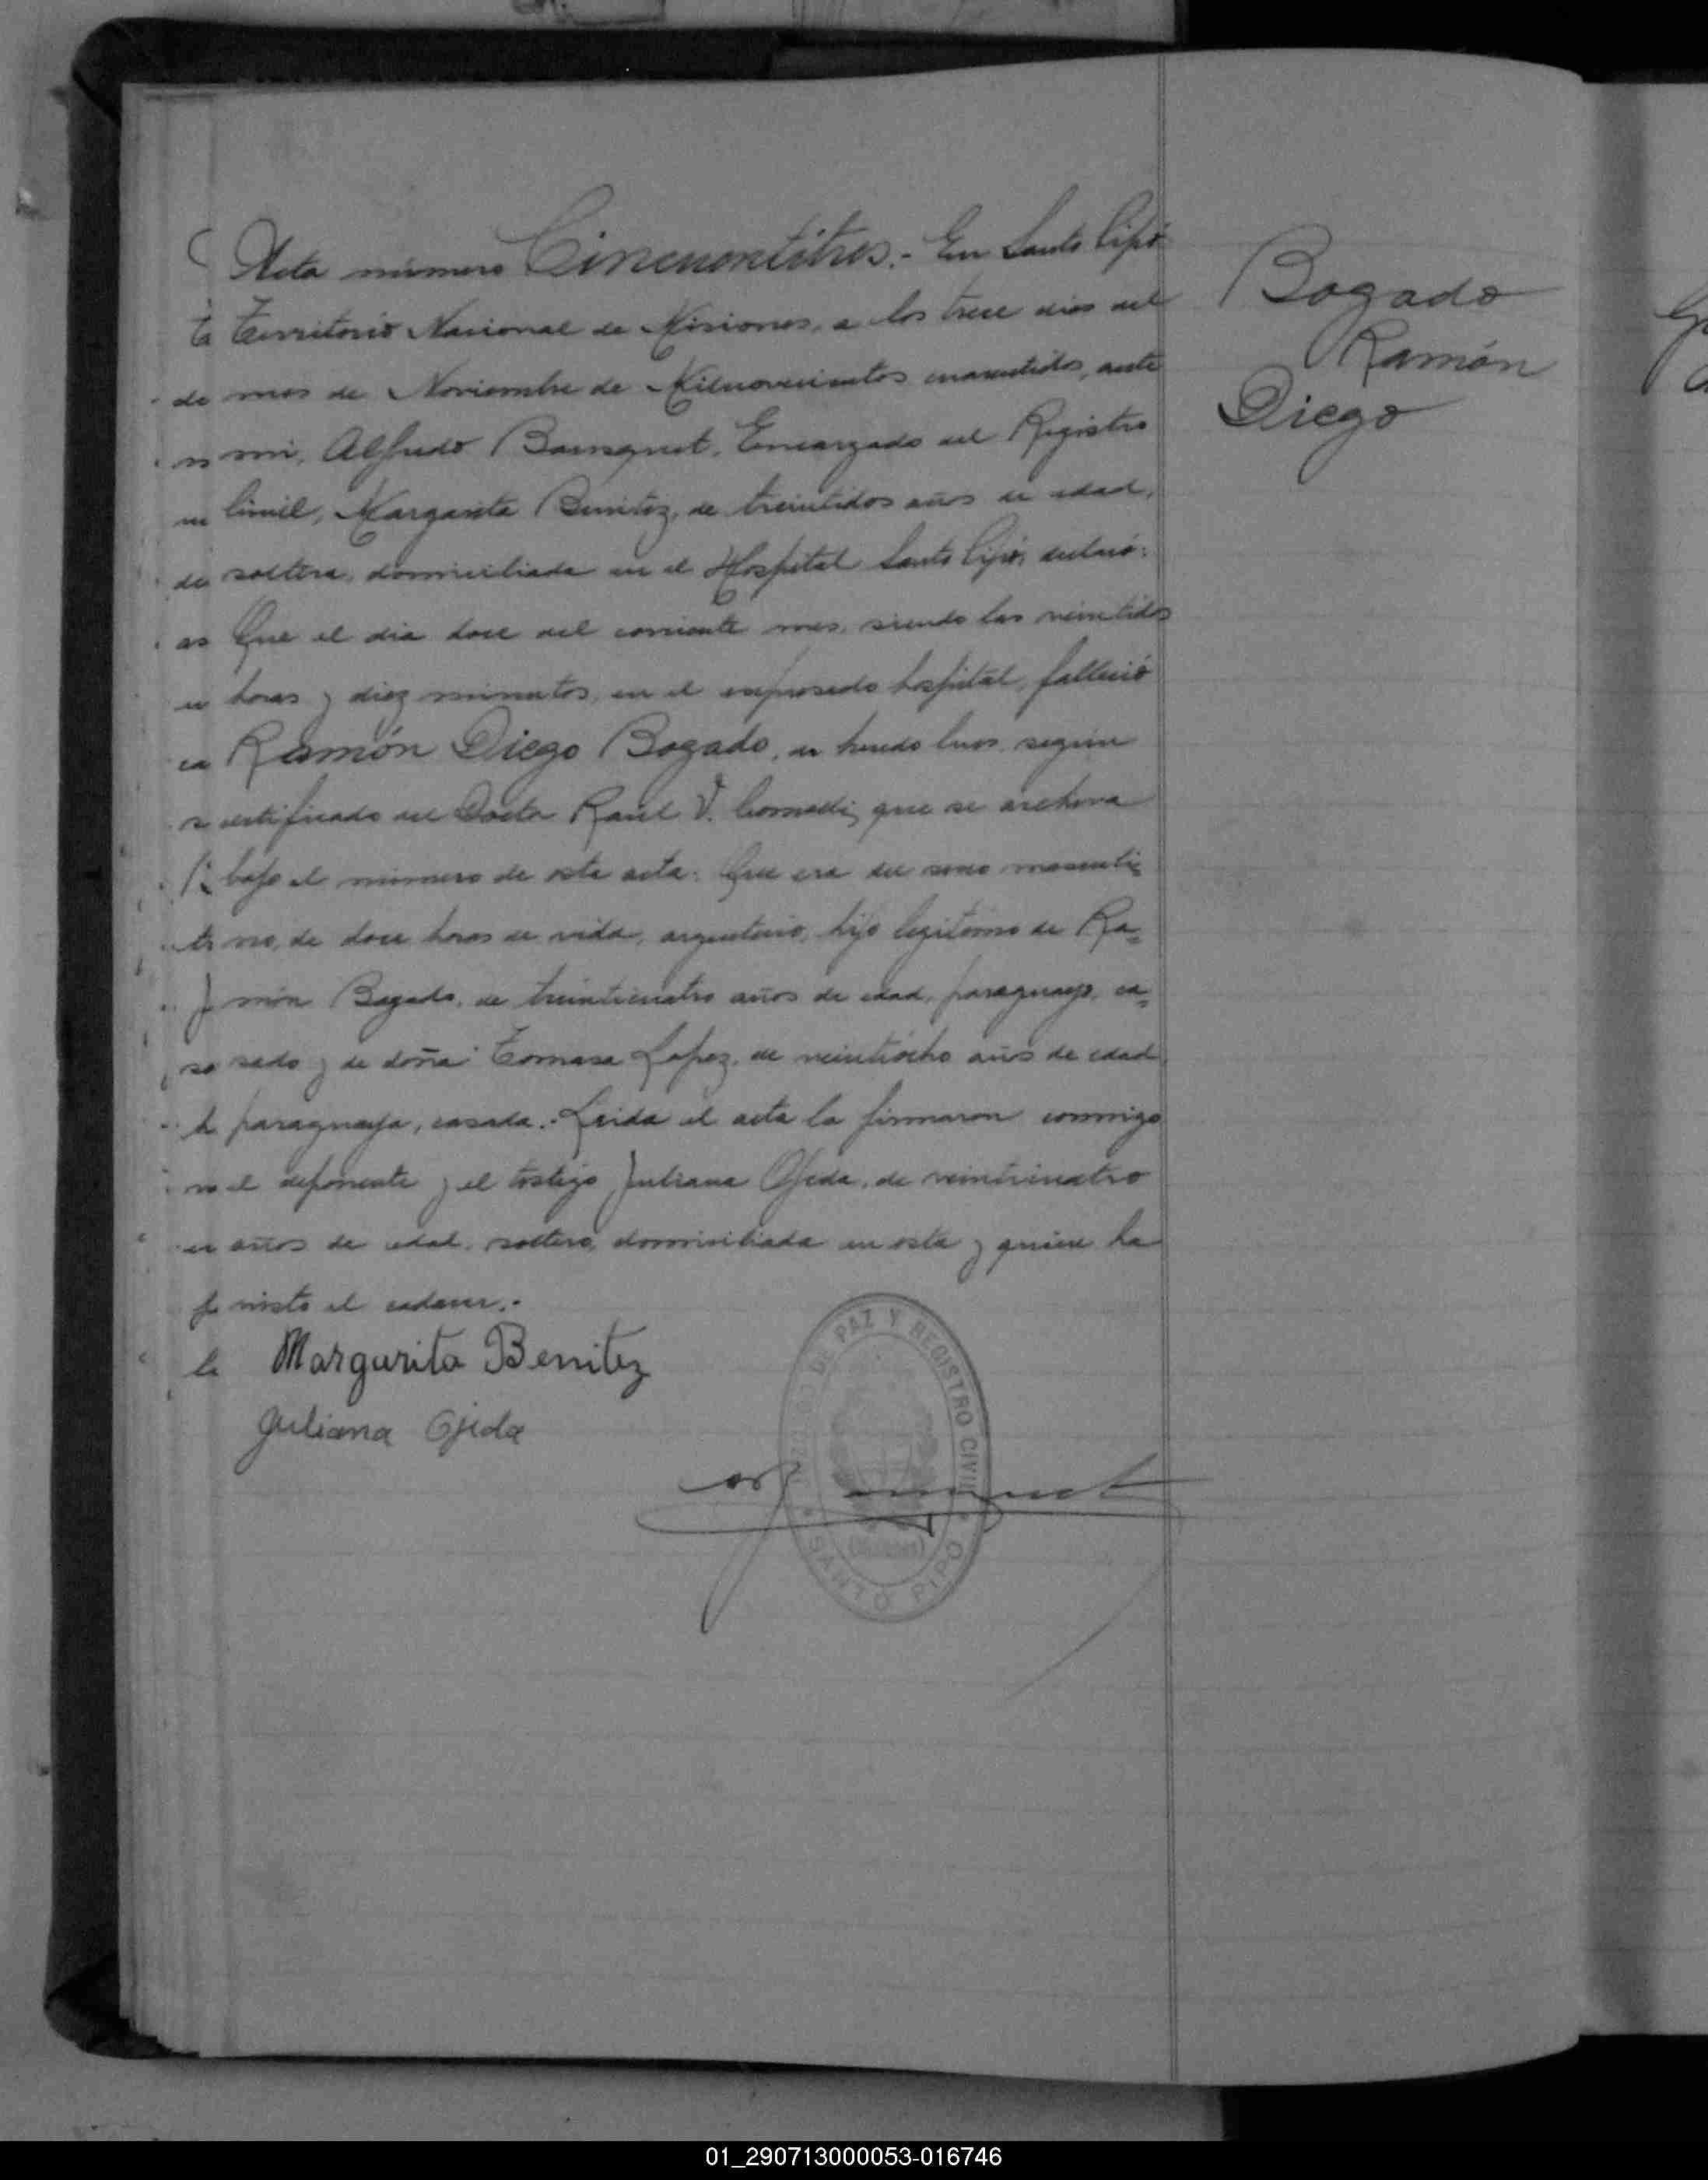 Acta número Cincuentitres.- En Santo Pipó
Territorio Nacional de Misiones, a los trece dias del
mes de Noviembre de Milnovecientos cuarentidos, ante
mi, Alfredo Encargado del Registro
Civil, Margarita Benitez, de treintidos años de edad,
soltera, domiciliada en el Hospital Santo Pipó, declaró:
Que el dia doce del corriente mes, siendo las veintidos
horas y diez minutos, en el expresado hospital, falleció
Ramón Diego Bogado, de según
certificado del Doctor Raúl V. que se archiva
bajo el número de esta acta. Que era del sexo masculi=
no, de doce horas de vida, argentino, hijo legítimo de Ra=
món Bogado, de treinticuatro años de edad, paraguayo, ca=
sado y de doña Tomasa Lopez, de veintiocho años de edad,
paraguaya, casada.- Leida el acta la firmaron conmigo
el deponente y el testigo Juliana Ojeda, de veinticuatro
años de edad, soltera, domiciliada en esta y quien ha
visto el cadaver.-
Margarita Benitez
Juliana Ojeda
JUZGADO DE PAZ Y REGISTRO CIVIL
(Misiones)
SANTO PIPO
Bogado
Ramón
Diego
01_290713000053-016746